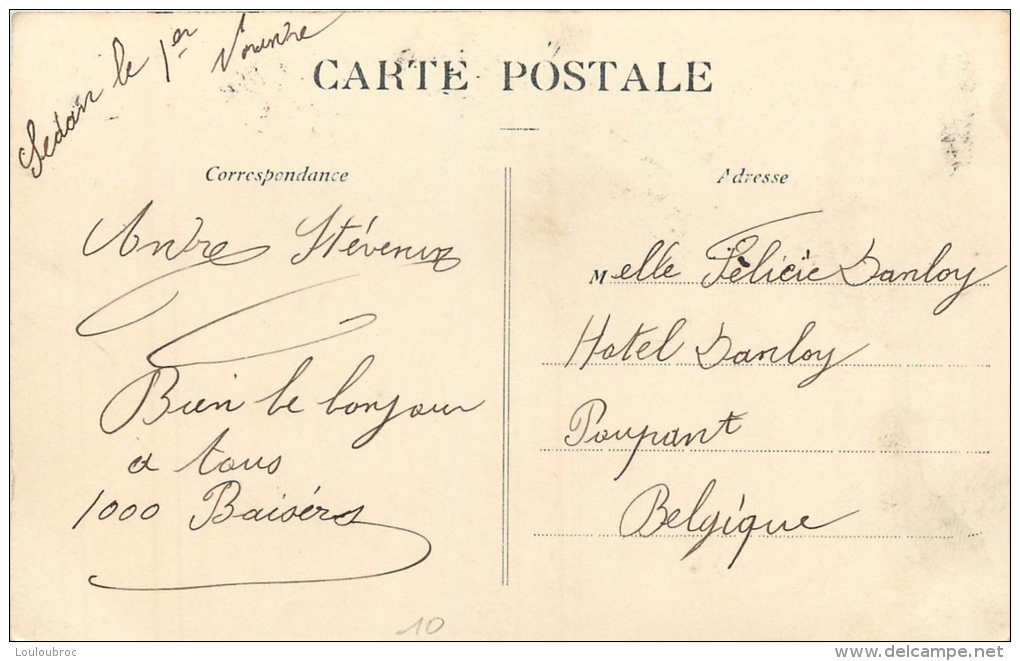 Sedan le 1er
CARTE POSTALE
Correspondance
Andre Stévenin
Bien le bonjour
a tous
1000 Baisérs
Adresse
Melle Félicie Danloy
Hotel Danloy
Poupant
Belgique
10
Louloubroc
delcampe.net